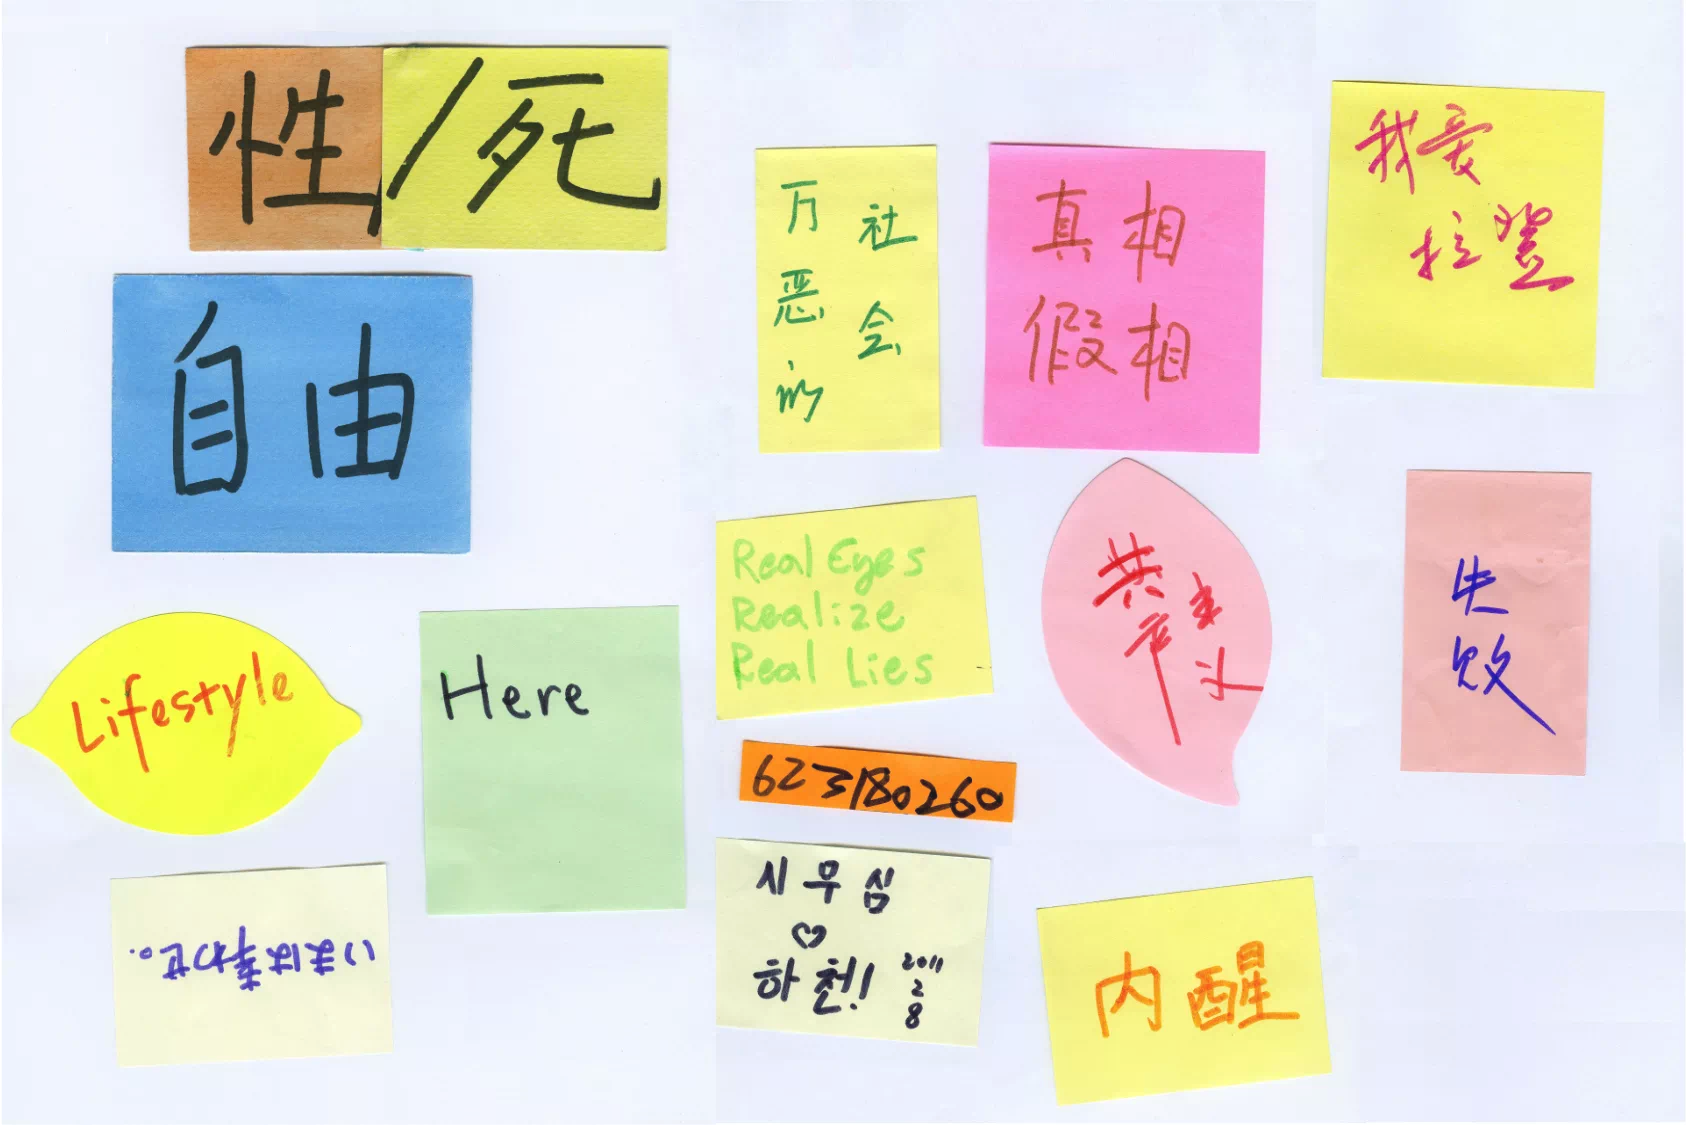 性/死
自由
Lifestyle
Here
いまは幸わせ。
万恶的
社会
真相
假相
我爱
拉登
Real Eyes
Realize
Real Lies
共产
主义
失败
623180260
시무심
♡
하천!
2011
2
8
内醒